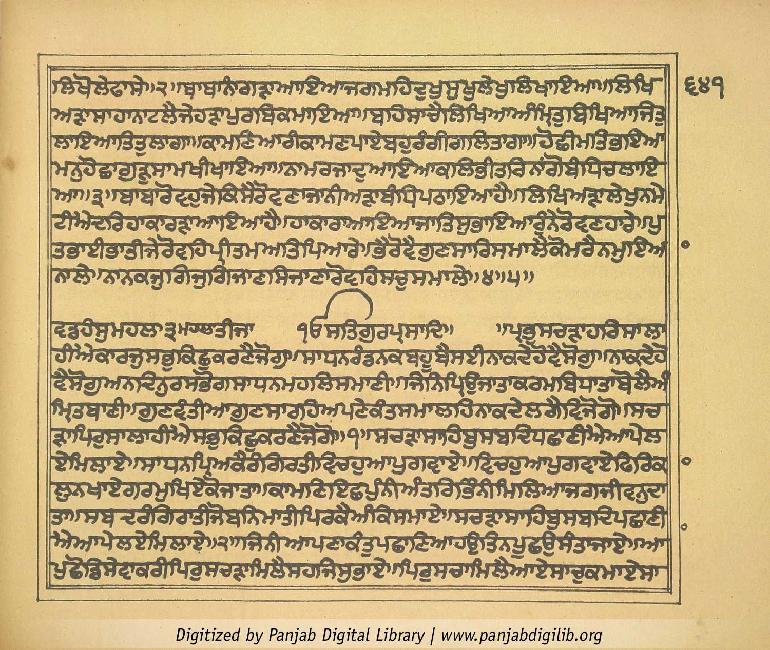 ॥੨॥ਬਾਬਾਨਾਂਗੜਾਆਇਆਜਗਮਹਿਦੁਖੁਸੁਖੁਲੇਖੁਲਿਖਾਇਆ॥ਲਿਖਿ
ਅੜਾਸਾਹਾਨਾਟਲੈਜੇਹੜਾਪੁਰਬਿਕਮਾਇਆ॥ਬਹਿਸਾਚੈਲਿਖਿਆਅੰਮ੍ਰਿਤੁਬਿਖਿਆਜਿਤੁ
ਲਾਇਆਤਿਤੁਲਾਗਾ॥ਕਾਮਣਿਆਰੀਕਾਮਣਪਾਏਬਹੁਰੰਗੀਗਲਿਤਾਗਾ॥ਹੋਛੀਮਤਿਭਇਆ
ਮਨੁਹੋਛਾਗੁੜੁਸਾਮਖੀਖਾਇਆ॥ਨਾਮਰਜਾਦੁਆਇਆਕਲਿਭੀਤਰਿਨਾਂਗੋਬੰਧਿਚਲਾਇ
ਆ॥੩॥ਬਾਬਾਰੋਵਹੁਜੇਕਿਸੈਰੋਵਣਾਜਾਨੀਅੜਾਬੰਧਿਪਠਾਇਆਹੈ॥ਲਿਖਿਅੜਾਲੇਖੁਨਮੇ
ਟੀਐਦਰਿਹਾਕਾਰੜਾਆਇਆਹੈ॥ਹਾਕਾਰਾਆਇਆਜਾਤਿਸੁਭਾਇਆਰੁੰਨੇਰੋਵਣਹਾਰੇ॥ਪੁ
ਤਭਾਈਭਾਤੀਜੇਰੋਵਹਿਪ੍ਰੀਤਮਅਤਿਪਿਆਰੇ॥ਭੈਰੋਵੈਗੁਣਸਾਰਿਸਮਾਲੇਕੋਮਰੈਨਮੁਇਆ
ਨਾਲੇ॥ਨਾਨਕਜੁਗਿਜੁਗਿਜਾਣਸਿਜਾਣਾਰੋਵਹਿਸਚੁਸਮਾਲੇ॥੪॥੫॥
ਵਡਹੰਸੁਮਹਲਾ੩ਮਹਲਾਤੀਜਾ ੴਸਤਿਗੁਰਪ੍ਰਸਾਦਿ॥ ॥ਪ੍ਰਭੁਸਚੜਾਹਰਿਸਾਲਾ
ਹੀਐਕਾਰਜੁਸਭੁਕਿਛੁਕਰਣੈਜੋਗੁ॥ਸਾਧਨਰੰਡਨਕਬਹੂਬੈਸਈਨਾਕਦੇਹੋਵੈਸੋਗੁ॥ਨਾਕਦੇਹੋ
ਵੈਸੋਗੁਅਨਦਿਨੁਰਸਭੋਗਸਾਧਨਮਹਲਿਸਮਾਣੀ॥ਜਿਨਿਪ੍ਰਿਉਜਾਤਾਕਰਮਬਿਧਾਤਾਬੋਲੇਅੰ
ਮ੍ਰਿਤਬਾਣੀ॥ਗੁਣਵੰਤੀਆਗੁਣਸਾਰਹਿਅਪਣੇਕੰਤਸਮਾਲਹਿਨਾਕਦੇਲਗੈਵਿਜੋਗੋ॥ਸਚ
ੜਾਪਿਰੁਸਾਲਾਹੀਐਸਭੁਕਿਛੁਕਰਣੈਜੋਗੋ॥੧॥ਸਚੜਾਸਾਹਿਬੁਸਬਦਿਪਛਾਣੀਐਆਪੇਲ
ਏਮਿਲਾਏ॥ਸਾਧਨਪ੍ਰਿਅਕੈਰੰਗਿਰਤੀਵਿਚਹੁਆਪੁਗਵਾਏ॥ਵਿਚਹੁਆਪੁਗਵਾਏਫਿਰਿਕਾ
ਲੁਨਖਾਏਗੁਰਮੁਖਿਏਕੋਜਾਤਾ॥ਕਾਮਣਿਇਛਪੁੰਨੀਅੰਤਰਿਭਿੰਨੀਮਿਲਿਆਜਗਜੀਵਨੁਦਾ
ਤਾ॥ਸਬਦਰੰਗਿਰਾਤੀਜੋਬਨਿਮਾਤੀਪਿਰਕੈਅੰਕਿਸਮਾਏ॥ਸਚੜਾਸਾਹਿਬੁਸਬਦਿਪਛਾਣੀ
ਐਆਪੇਲਏਮਿਲਾਏ॥੨॥ਜਿਨੀਆਪਣਾਕੰਤੁਪਛਾਣਿਆਹਉਤਿਨਪੂਛਉਸੰਤਾਜਾਏ॥ਆ
ਪੁਛੋਡਿਸੇਵਾਕਰੀਪਿਰੁਸਚੜਾਮਿਲੈਸਹਜਿਸੁਭਾਏ॥ਪਿਰੁਸਚਾਮਿਲੈਆਏਸਾਚੁਕਮਾਏਸਾ
੬੪੧
Digitized by Panjab Digital Library | www.panjabdigilib.org